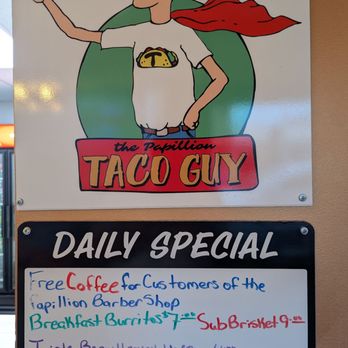 T
the Papillion
TACO GUY
DAILY SPECIAL
Free Coffee for Customers of the
Papillion BarberShop
Breakfast Burritos $7.00 Sub Brisket 9.00